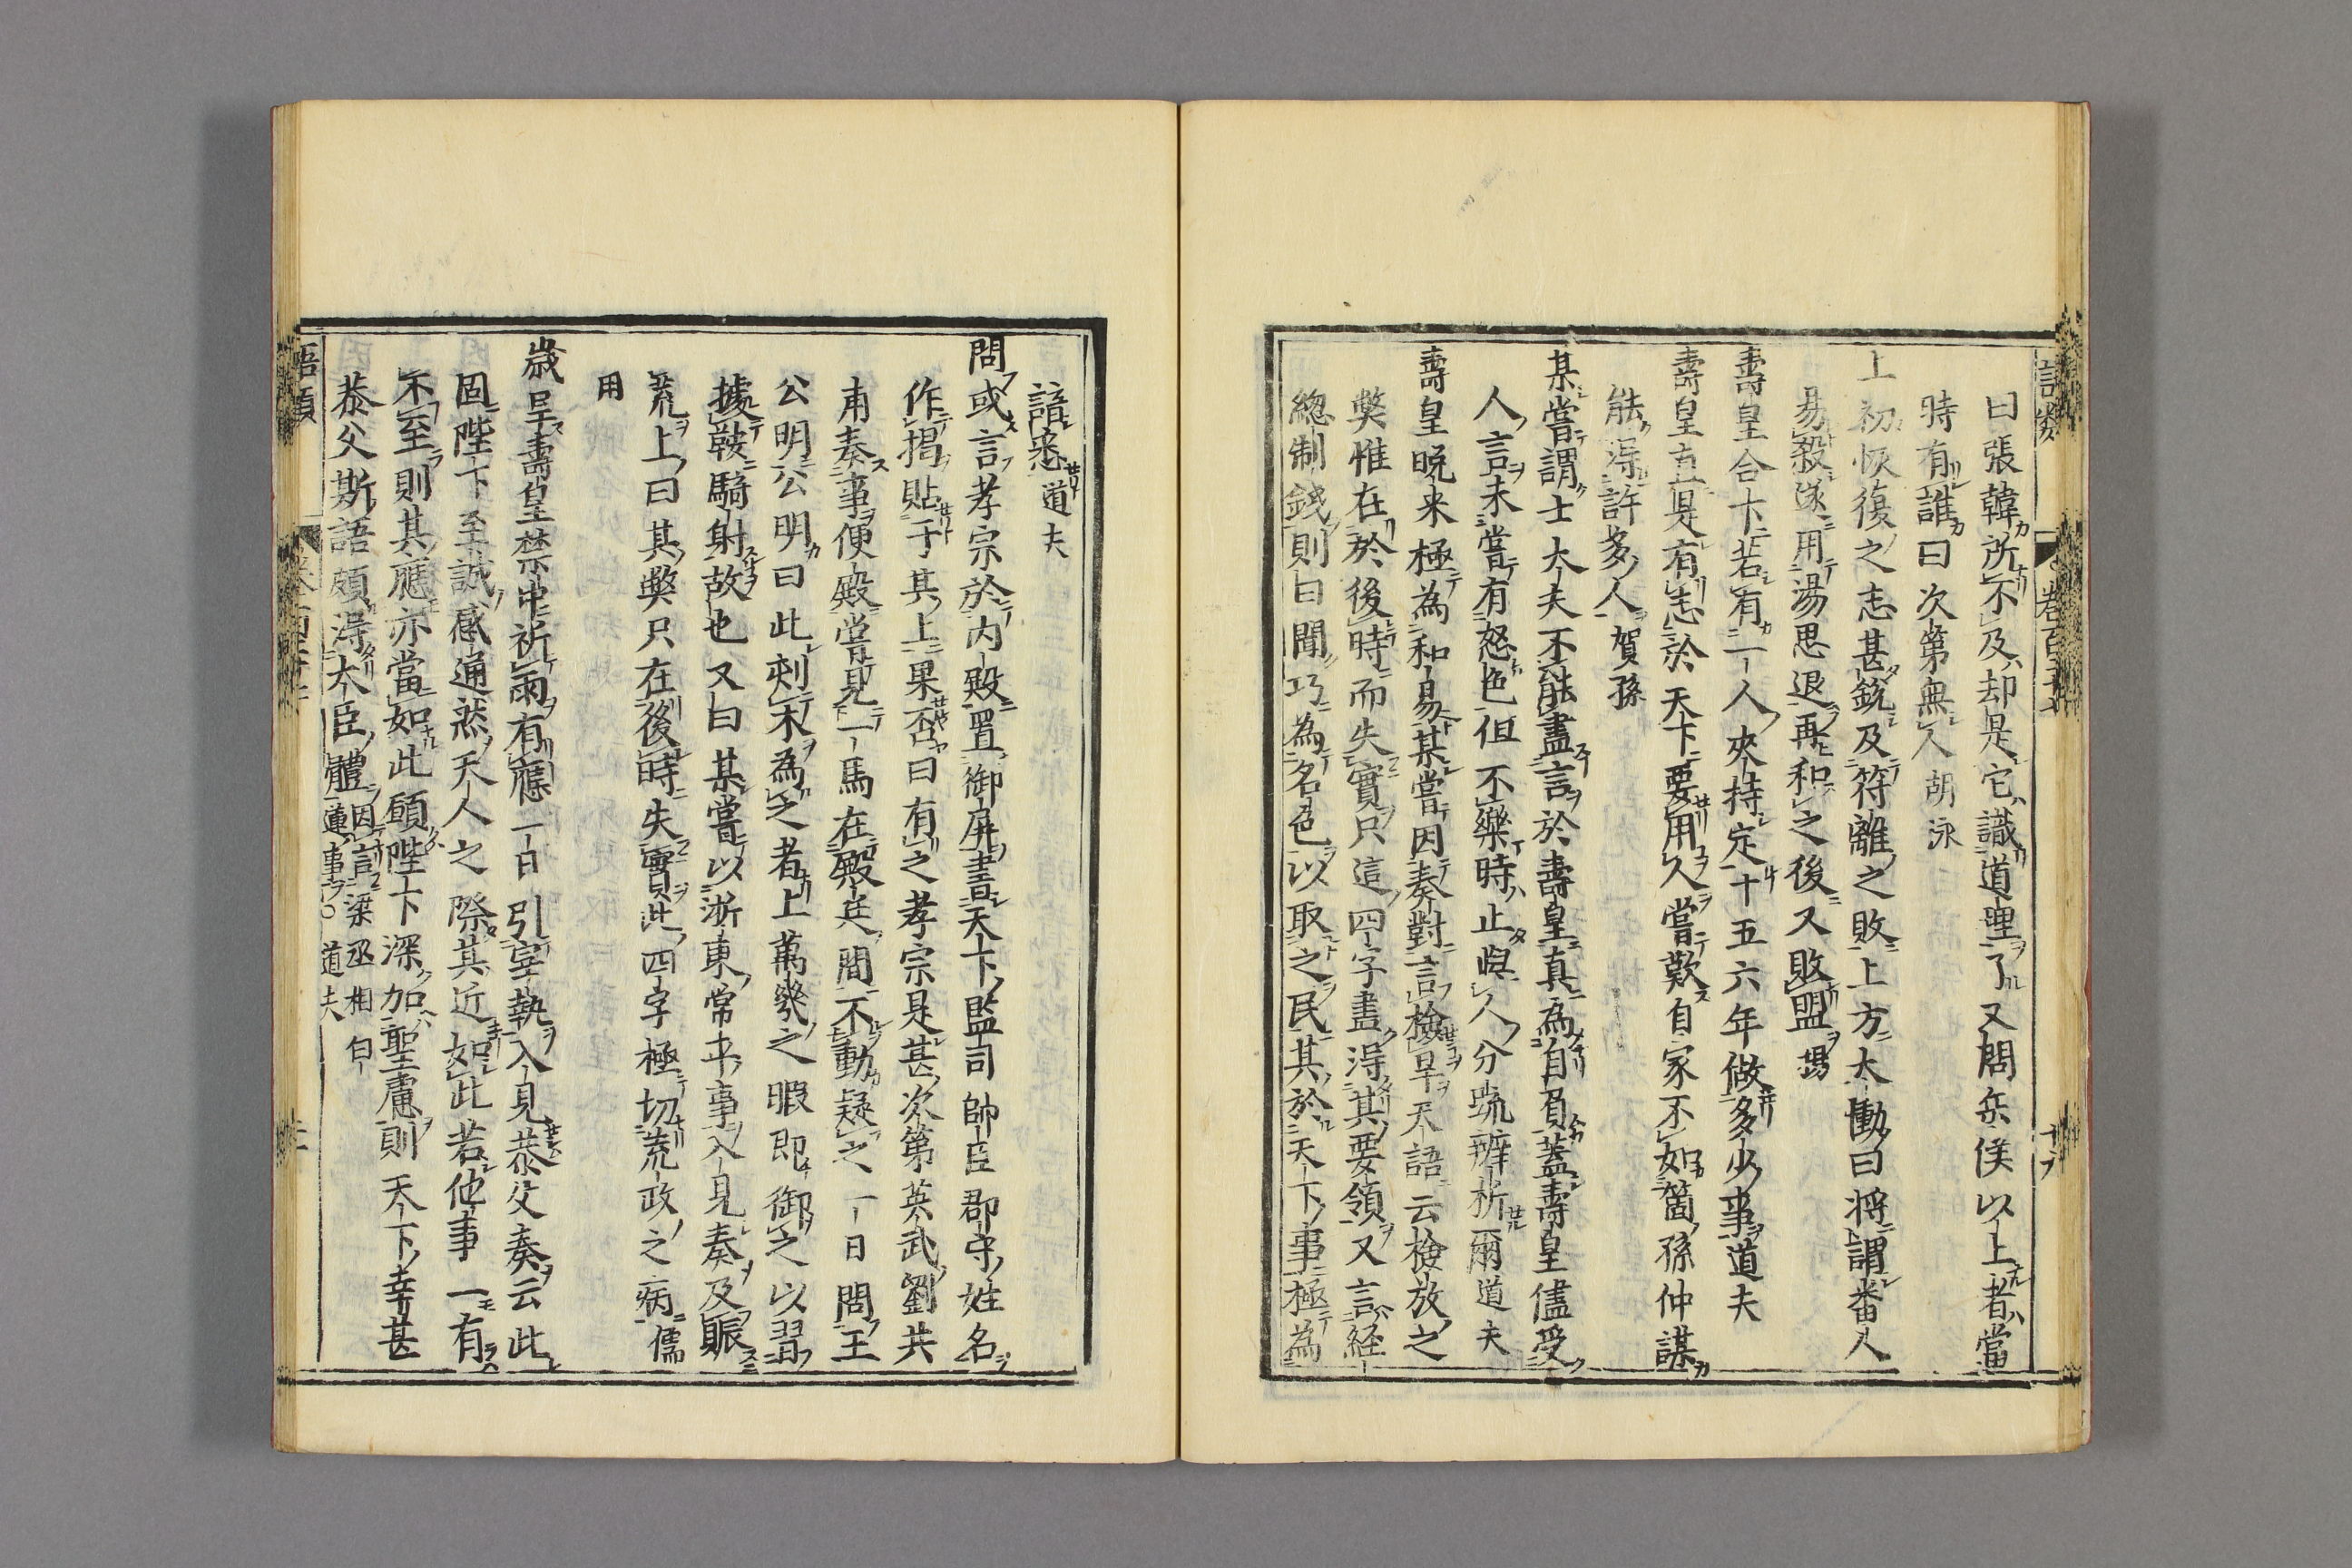 曰張韓所不及却是它識道理了又問岳侯以上者當
時有誰曰次第無人胡泳
上初恢復之志甚銳及符離之敗上方大慟曰將謂番人
易殺遂用湯思退再和之後又敗盟揚
壽皇合下若有一人夾持定十五六年做多少事道夫
壽皇直是有志於天下要用人嘗歎自家不如箇孫仲謀
能得許多人賀孫
某嘗謂士大夫不能盡言於壽皇真為自負蓋壽皇儘受
人言未嘗有怒色但不樂時止與人分疏辨析爾道夫
壽皇晩来極為和易某嘗因奏對言檢旱天語云檢放之
獘惟在於後時而失實只這四字盡得其要領又言経
總制錢則曰聞巧為名色以取之民其於天下事極為
諳悉道夫
問或言孝宗於内殿置御屏書天下監司帥臣郡守姓名
作掲貼于其上果否曰有之孝宗是甚次第英武劉共
甫奏事便殿嘗見一馬在殿廷間不動疑之一日問王
公明公明曰此刻木為之者上萬幾之暇即御之以習
據鞍騎射故也又曰某嘗以浙東常平事入見奏及賑
荒上曰其獘只在後時失實此四字極切荒政之病儒
用
歲旱壽皇禁中祈雨有應一日引宰執入見恭父奏云此
固陛下至誠感通然天人之際其近如此若他事一有
不至則其應亦當如此願陛下深加聖慮則天下幸甚
恭父斯語頗得大臣體因言梁丞相白
蓮事○道夫
語類 卷百廿七 十六
語類